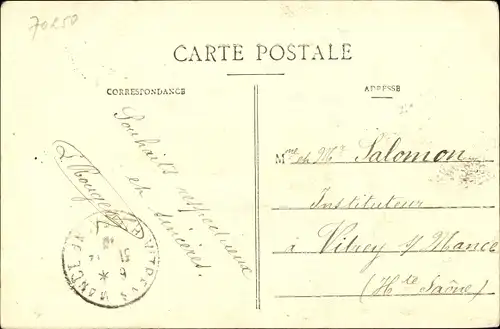 70250
CARTE POSTALE
CORRESPONDANCE
ADRESSE
Souhaits respectueux
et sincères.
L. Rouget
Mme et Mr Salomon
Instituteur
à Vitrey s/ Mance
(Hte Saône)